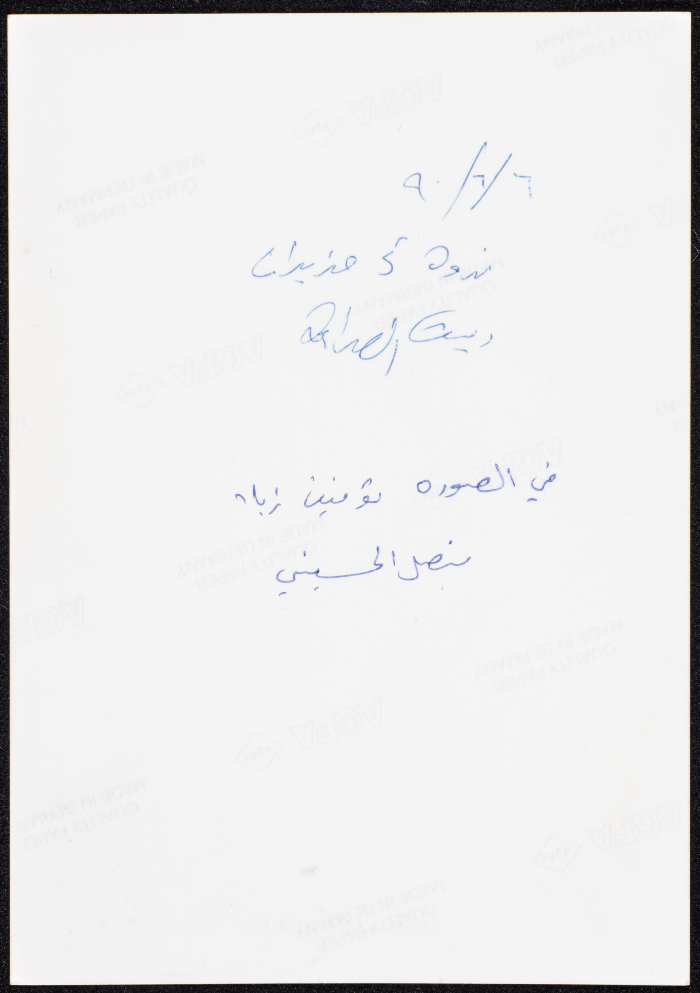 ٩٠/٦/٦
ندوة ٥ حزيران
بيت الصداقة
في الصوره توفيق زياد
فيصل الحسيني
AGFA
MADE IN GERMANY
QUALITY PAPER